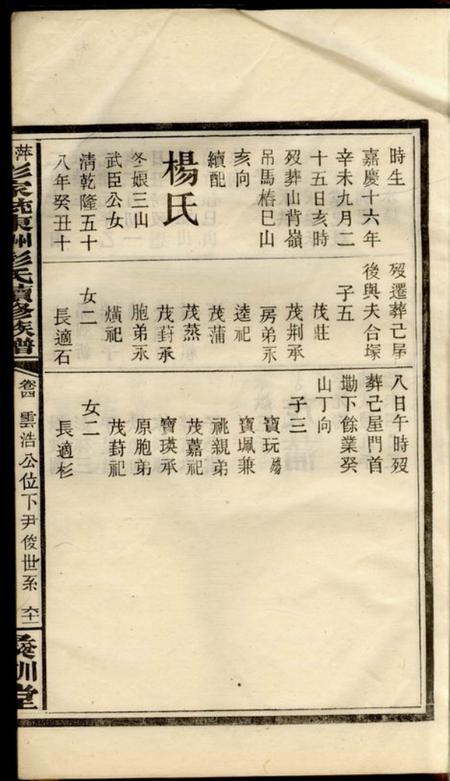 時生
嘉慶十六年
辛未九月二
十五日亥時
歿葬山背嶺
吊馬樁巳山
亥向
續配
楊氏
冬娘三山
武臣公女
清乾隆五十
八年癸丑十
歿遷葬己屋
後與夫合塚
子五
茂莊
茂荆承
房弟永
逵祀
茂蒲
茂蒸
茂葑承
胞弟永
熿祀
女二
長適石
八日午時歿
葬己屋門首
墈下餘業癸
山丁向
子三
寶玩殤
寶珮兼
祧親弟
茂嘉祀
寶瑛承
原胞弟
茂葑祀
女二
長適杉
萍 東洲彭氏續修族譜
卷四 雲浩公位下尹俊世系
訓堂